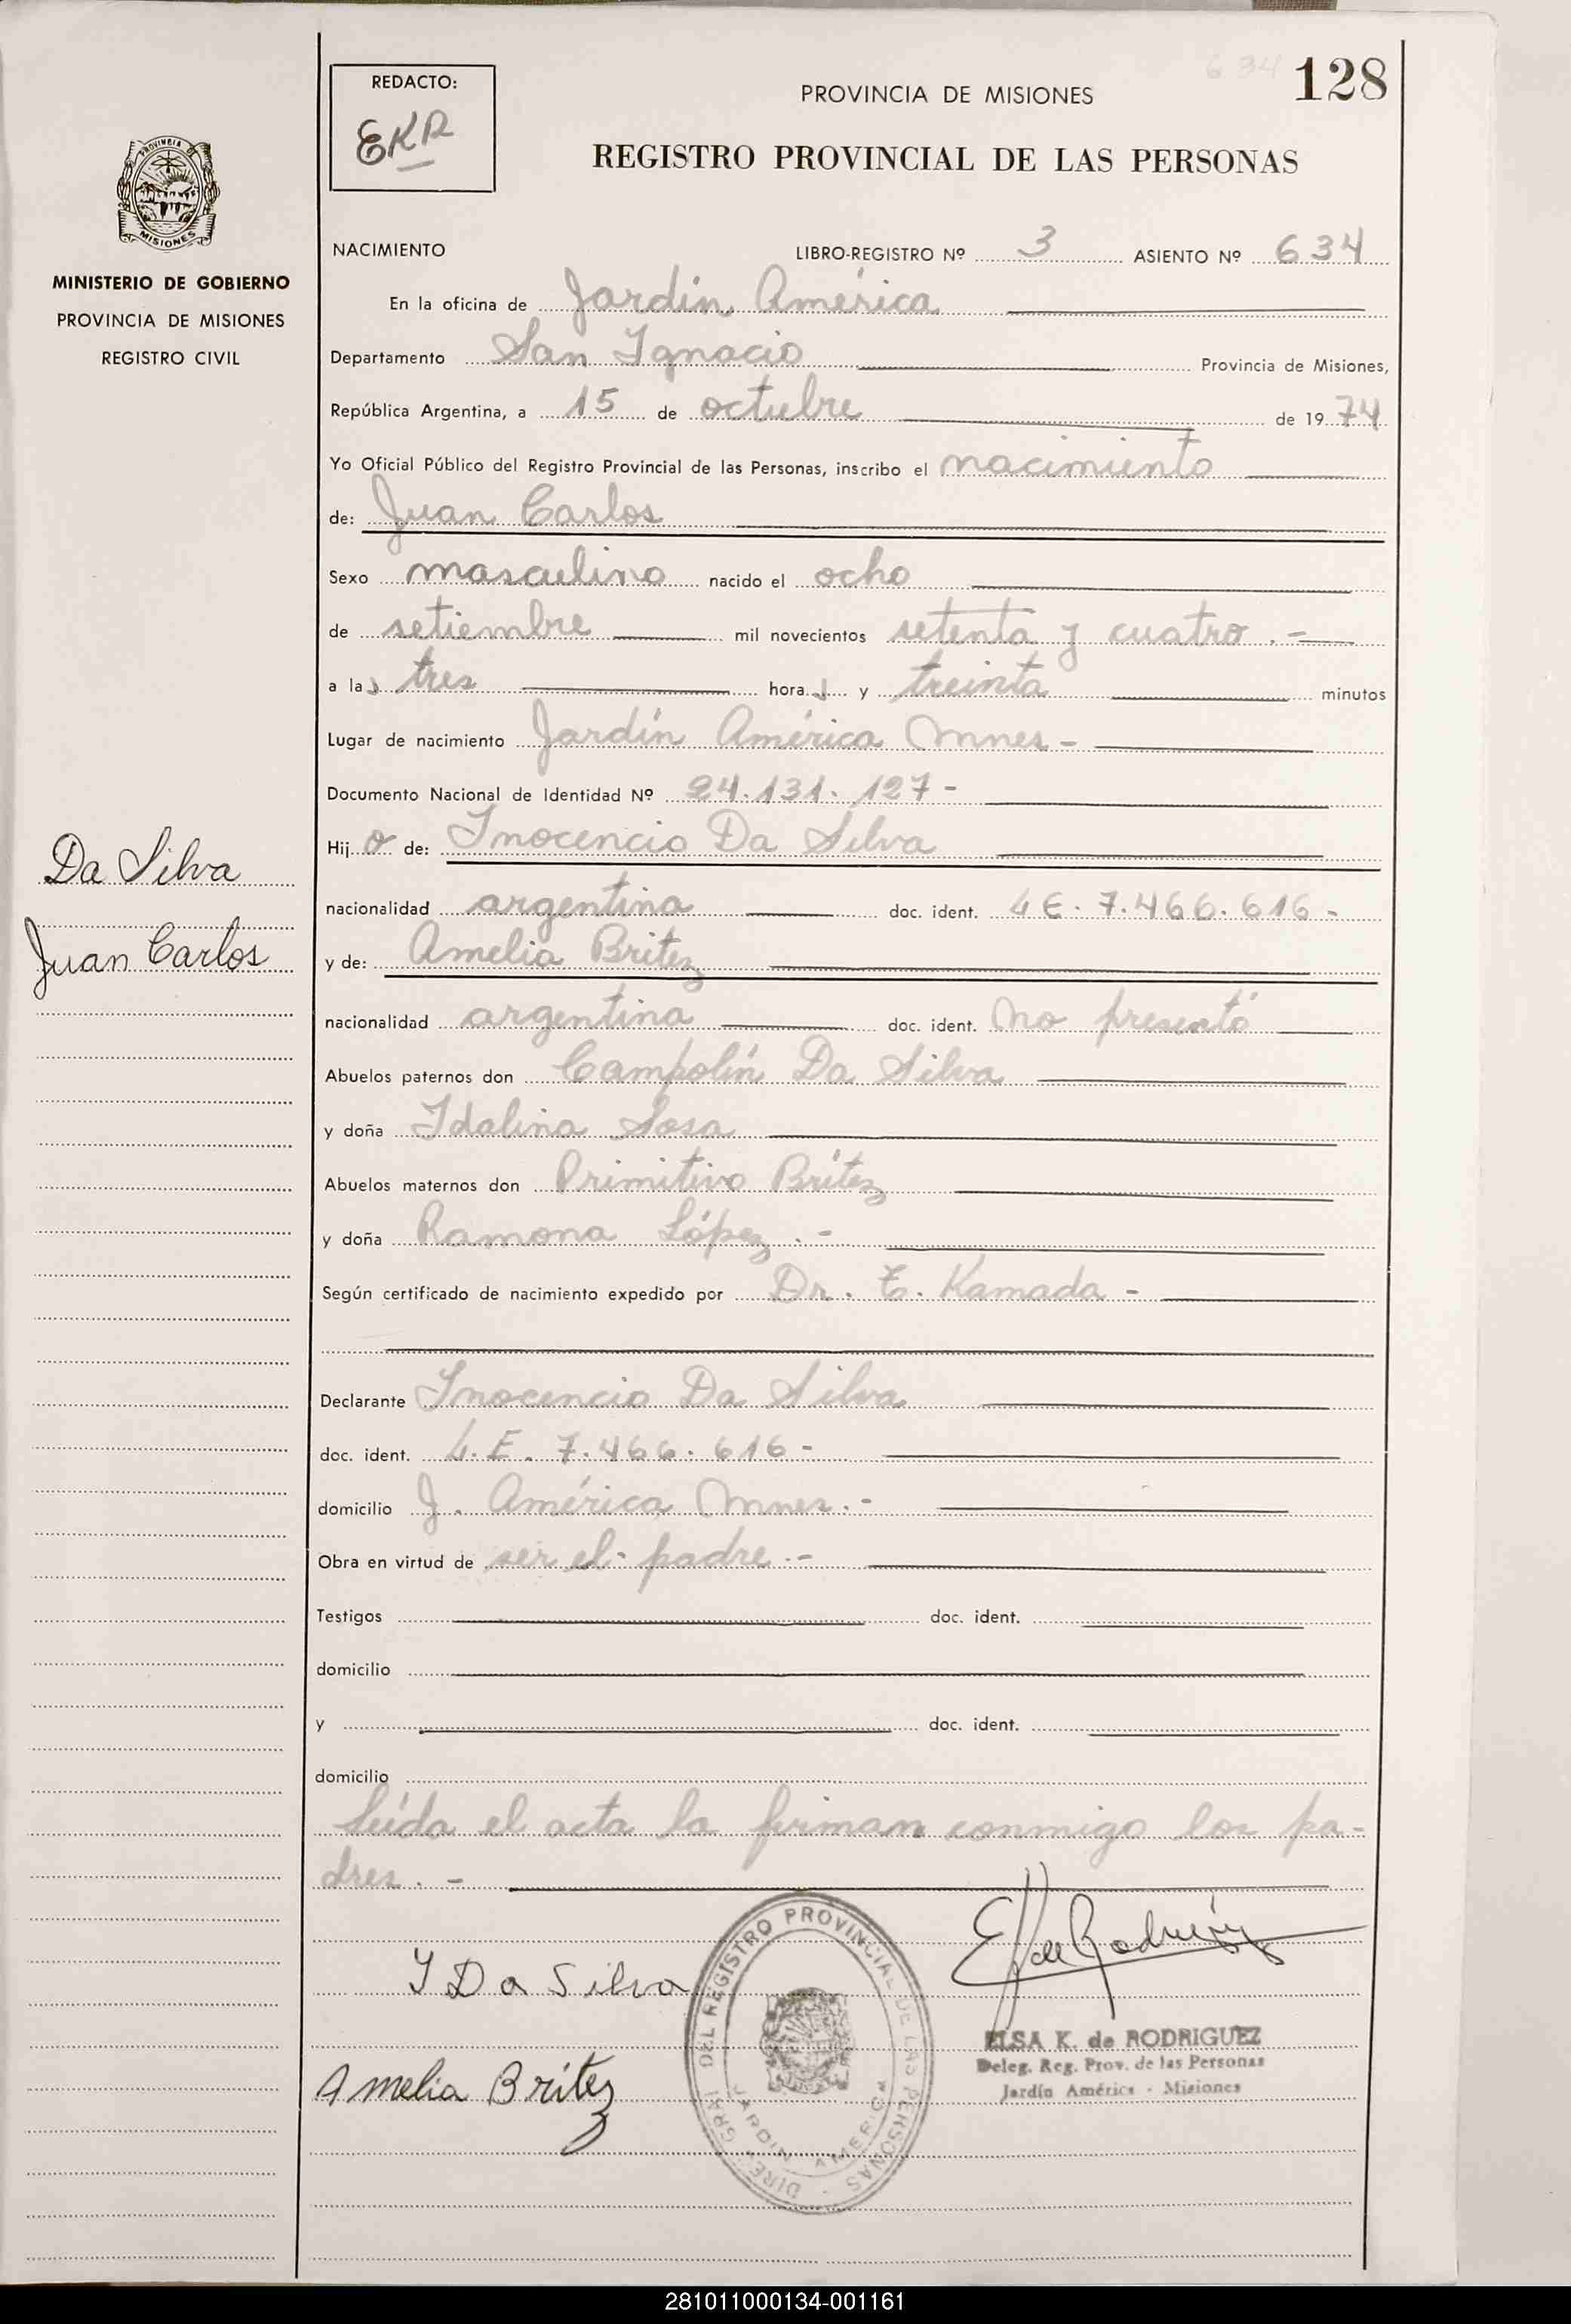 634 128
REDACTO:
EKR
PROVINCIA DE MISIONES
REGISTRO PROVINCIAL DE LAS PERSONAS
PROVINCIA DE
MISIONES
MINISTERIO DE GOBIERNO
PROVINCIA DE MISIONES
REGISTRO CIVIL
NACIMIENTO LIBRO-REGISTRO Nº 3 ASIENTO Nº 634
En la oficina de Jardín América
Departamento San Ignacio Provincia de Misiones,
República Argentina, a 15 de octubre de 1974
Yo Oficial Público del Registro Provincial de las Personas, inscribo el nacimiento
de: Juan Carlos
Sexo masculino nacido el ocho
de setiembre mil novecientos setenta y cuatro.-
a las tres horas y treinta minutos
Lugar de nacimiento Jardín América Mnes-
Documento Nacional de Identidad Nº 24.131.127-
Hijo de: Inocencio Da Silva
Da Silva
Juan Carlos
nacionalidad argentina doc. ident. LE. 7.466.616-
y de: Amelia Britez
nacionalidad argentina doc. ident. no presentó
Abuelos paternos don Campolín Da Silva
y doña Idalina Sosa
Abuelos maternos don Primitivo Britez
y doña Ramona López.-
Según certificado de nacimiento expedido por Dr. T. Kamada-
Declarante Inocencio Da Silva
doc. ident. L.E. 7.466.616-
domicilio J. América Mnes.-
Obra en virtud de ser el padre.-
Testigos doc. ident.
domicilio
y doc. ident.
domicilio
Leída el acta la firman conmigo los pa-
dres.-
I Da Silva
Amelia Britez
E K de Rodriguez
DIREC. GRAL DEL REGISTRO PROVINCIAL DE LAS PERSONAS
JARDIN AMERICA
ELSA K. de RODRIGUEZ
Deleg. Reg. Prov. de las Personas
Jardín América - Misiones
281011000134-001161